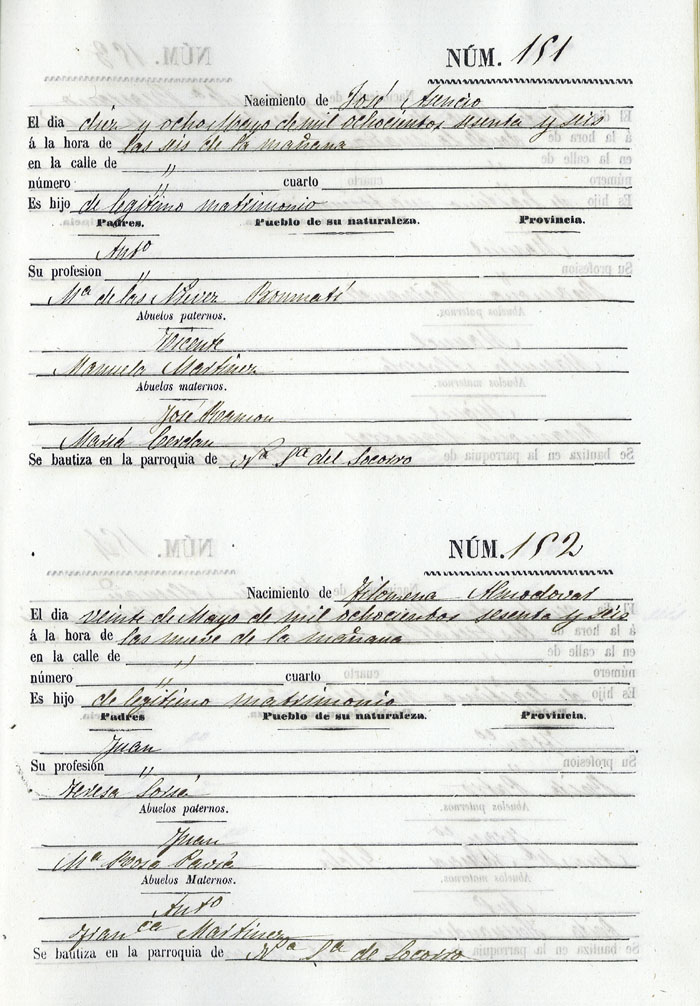 NÚM. 151
Nacimiento de José Asencio
El dia diez y ocho Mayo de mil ochocientos sesenta y seis
á la hora de las seis de la mañana
en la calle de "
número " cuarto
Es hijo de legitimo matrimonio
Padres. Pueblo de su naturaleza. Provincia.
Antº
Su profesion "
Mª de las Nieves Bonmatí
Abuelos paternos.
Vicente
Manuela Martinez
Abuelos maternos.
José Ramon
María Cerdan
Se bautiza en la parroquia de Nª Sª del Socorro
NÚM. 152
Nacimiento de Filomena Almodovar
El dia veinte de Mayo de mil ochocientos sesenta y seis
á la hora de las nueve de la mañana
en la calle de "
número " cuarto
Es hijo de legitimo matrimonio
Padres Pueblo de su naturaleza. Provincia.
Juan
Su profesión "
Teresa
Abuelos paternos.
Juan
Mª Rosa
Abuelos Maternos.
Antº
Franca Martinez
Se bautiza en la parroquia de Nª Sª de Socorro